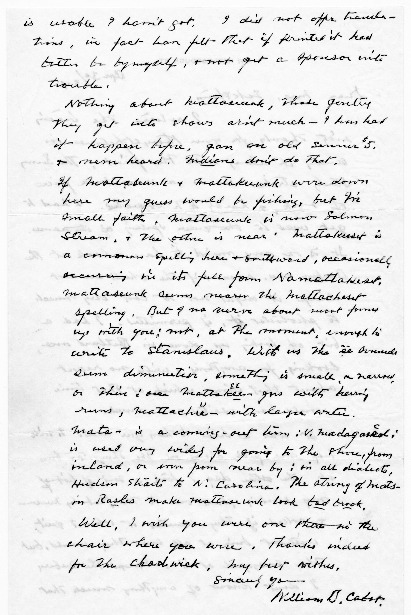 is usable I havn't got. I did not offer transla-
tions, in fact have felt that if printed it had
better be by myself, & not get a sponsor into
trouble.
Nothing about Mattaseunk, those gentry
They get into shows ain't much – I have had
it happen before, from an old
& never heard. Indians don't do that.
If Mattaseunk & Mattakeunk were down
here my guess would be fishing, but I've
small faith, Mattaseunk is now Salmon
Stream, & the other is near. Mattakeset is
a common spelling here & southward, occasionally
occurring in its full form Namattakeset.
Mattaseunk seems nearer the Mattacheset
spelling. But I no nerve about most forms
up with you; not, at the moment, enough to
write to Stanislaus. With us the sounds
seem diminutive, something is small or narrow,
or thin; our Mattakeeset goes with herring
runs, Mattachee – with larger water.
Mata- is a coming-out term; V. Madagascal;
is used very widely for going to the shore, from
inland, or even from near by; in all dialects,
Hudson Straits to N. Carolina. The string of Mats-
in Rasles make Mattaseunk look bad
Well, I wish you were one there in the
chair where you were. Thanks indeed
for the Chadwick, My best wishes.
Sincerely yours
William B. Cabot.